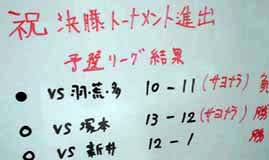 祝 決勝トーナメント進出
予選リーグ結果
● VS 羽・荒・多 10-11 (サヨナラ)
○ VS 塚本 13-12 (サヨナラ) 勝
○ VS 新井 12-1 勝